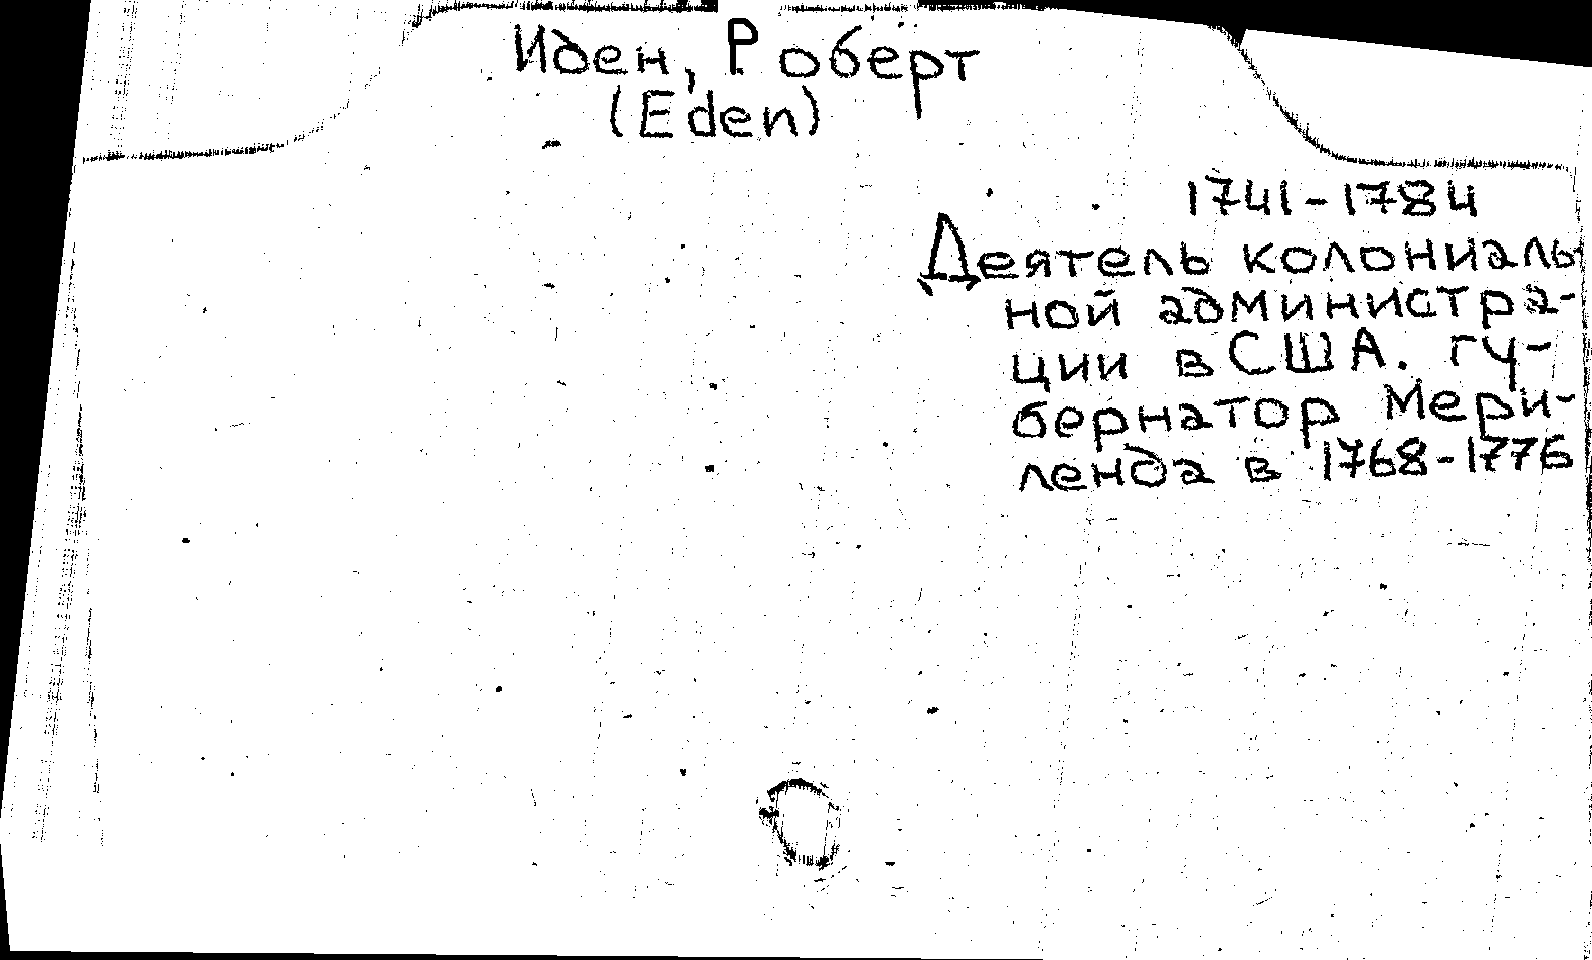 Иден, Роберт
(Eden)
1741-1784
Деятель колониаль-
ной администра-
ции в США. гу-
бернатор Мери-
ленда в 1768-1776